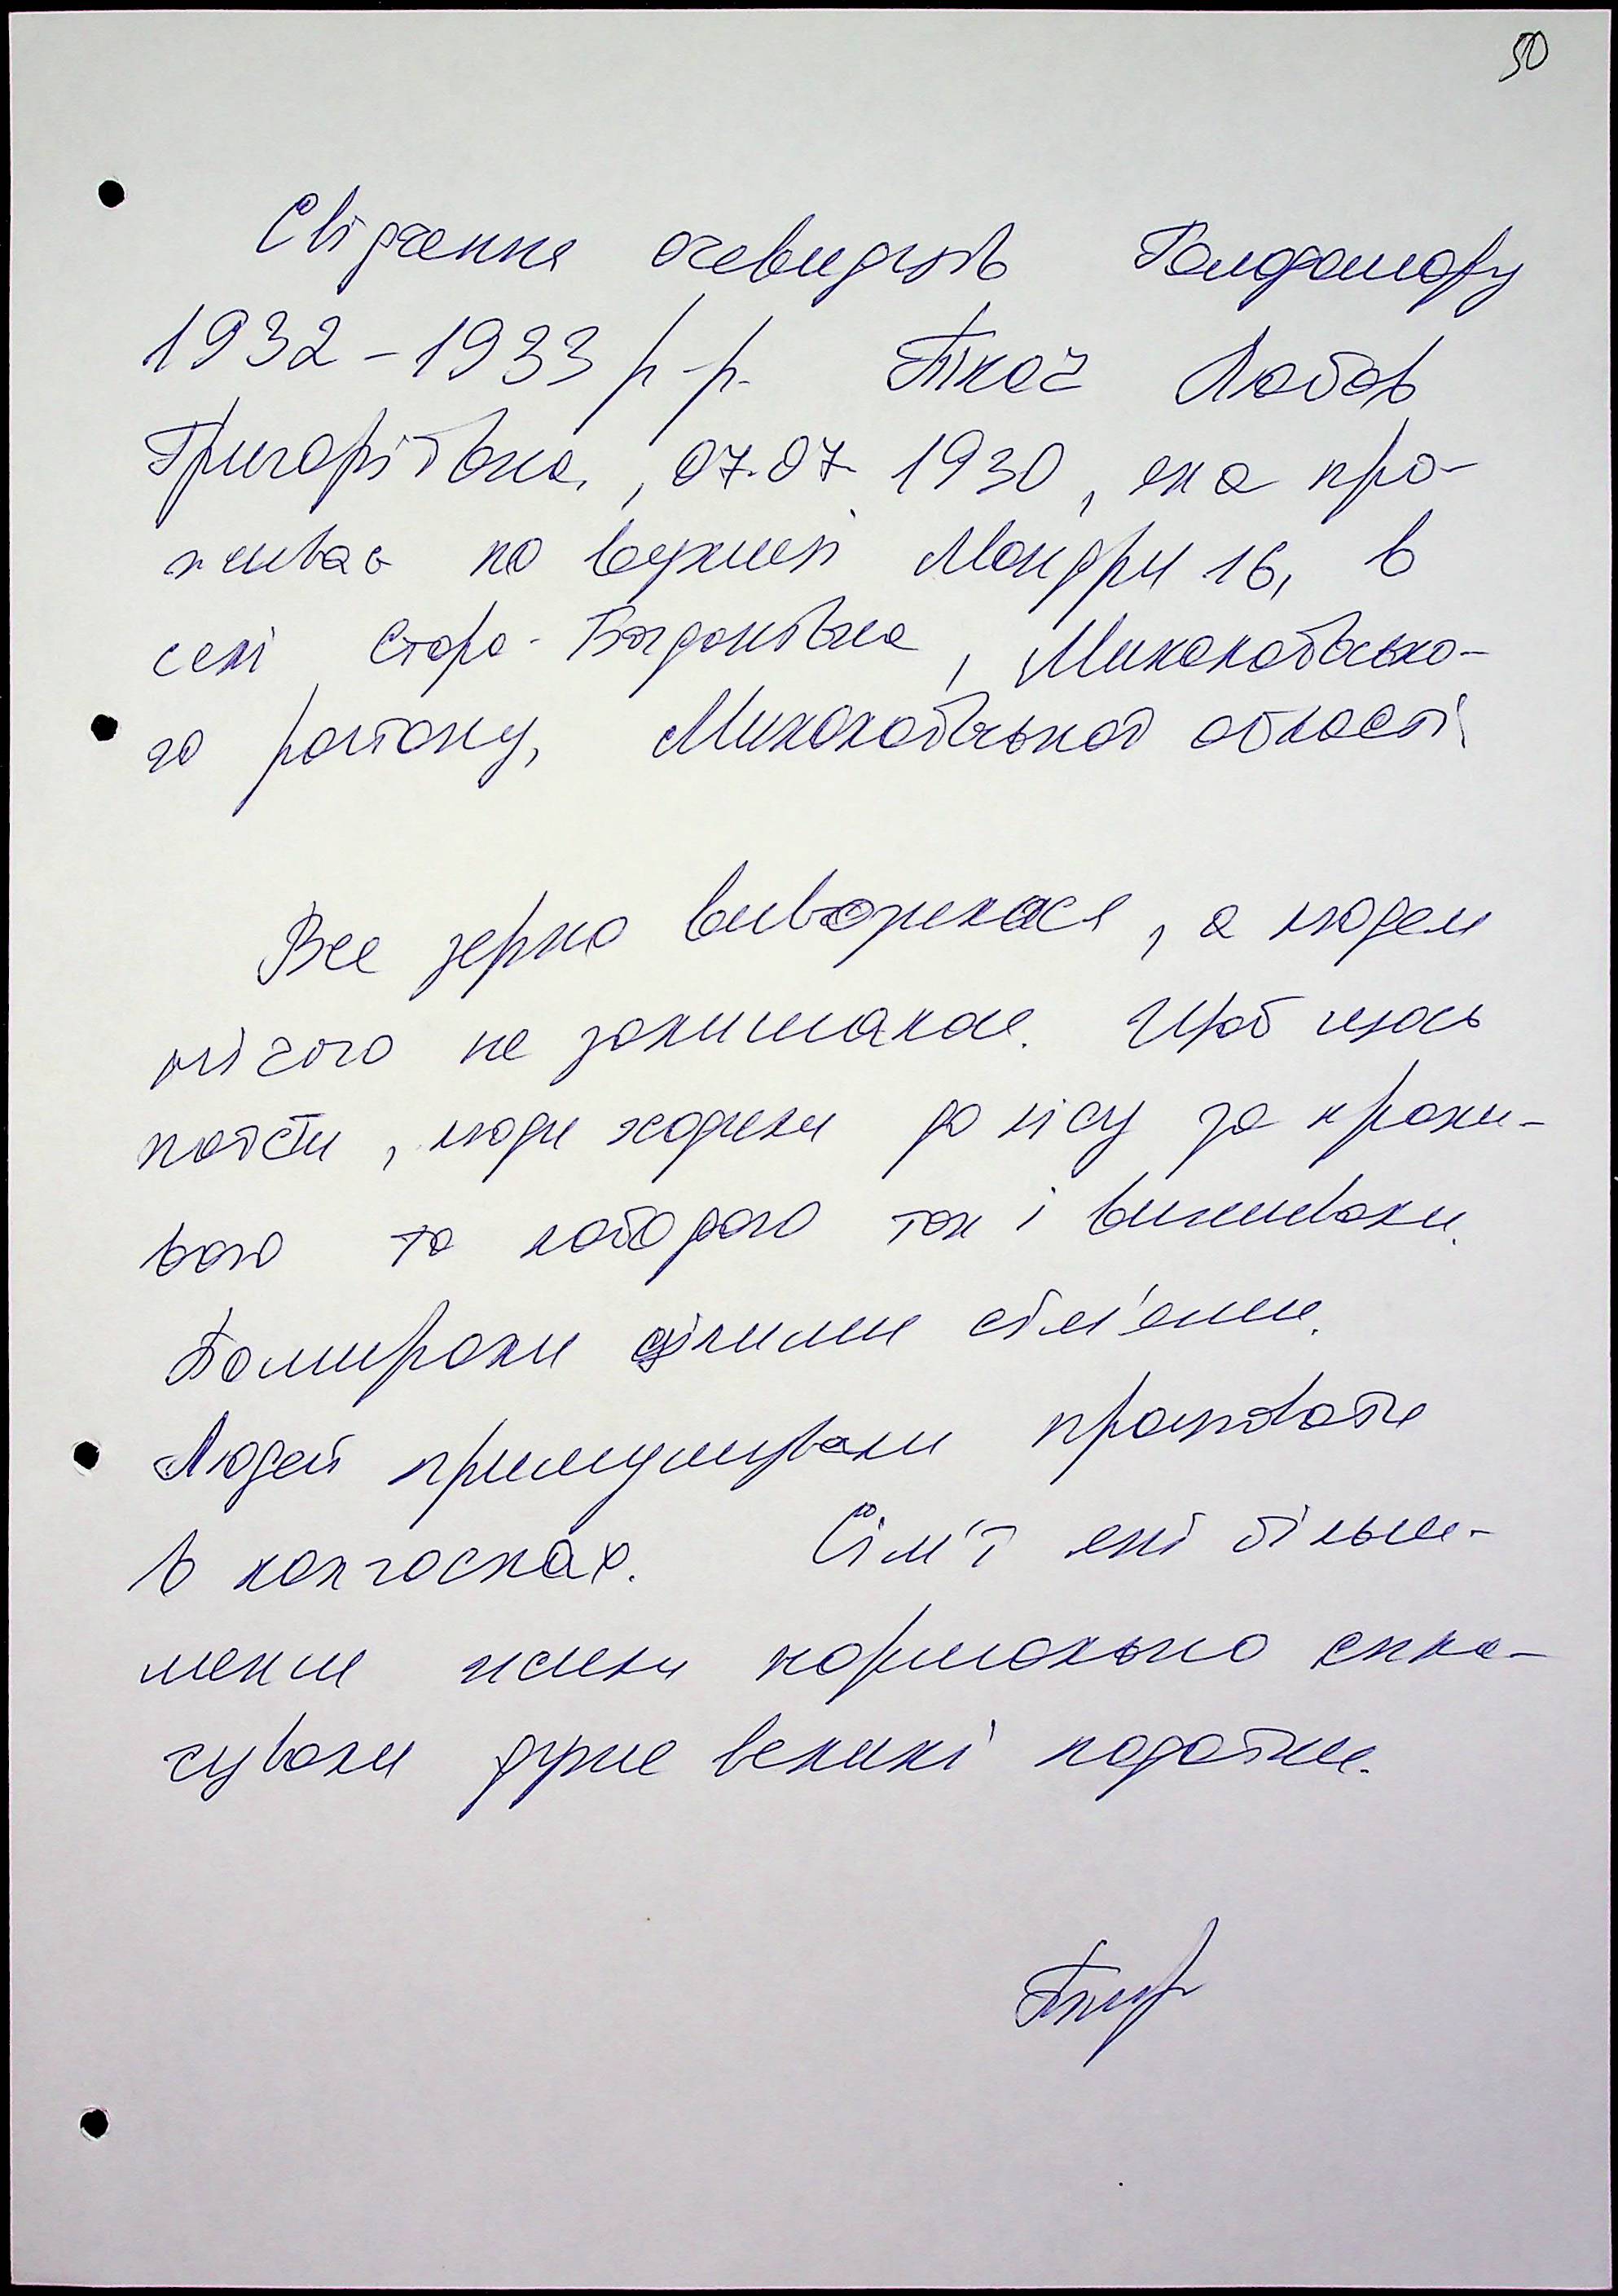 50
Свідчення очевидців Голодомору
1932-1933 р-р. Ткач Любов
Григорівна, 07.07 1930, яка про-
живає по вулиці Мондри 16, в
селі Старо-Богданівка, Миколаївсько-
го району, Миколаївської області
Все зерно вивозилося, а людям
нічого не залишалося. Щоб щось
поїсти, люди ходили до лісу за кропи-
вою та лободою так і виживали.
Помирали цілими сім'ями.
Людей примушували працювати
в колгоспах. Сім'ї які більш-
менш жили нормально спла-
чували дуже великі податки.